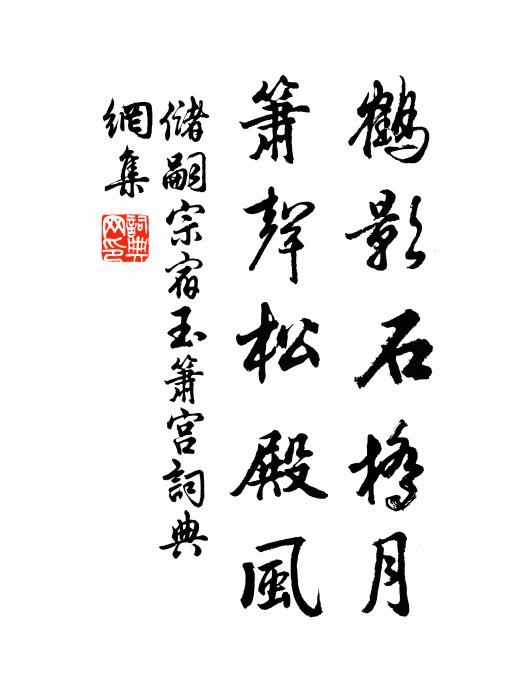 鶴影石橋月
簫聲松殿風
儲嗣宗宿玉簫宮詞典
網集
詞典網印